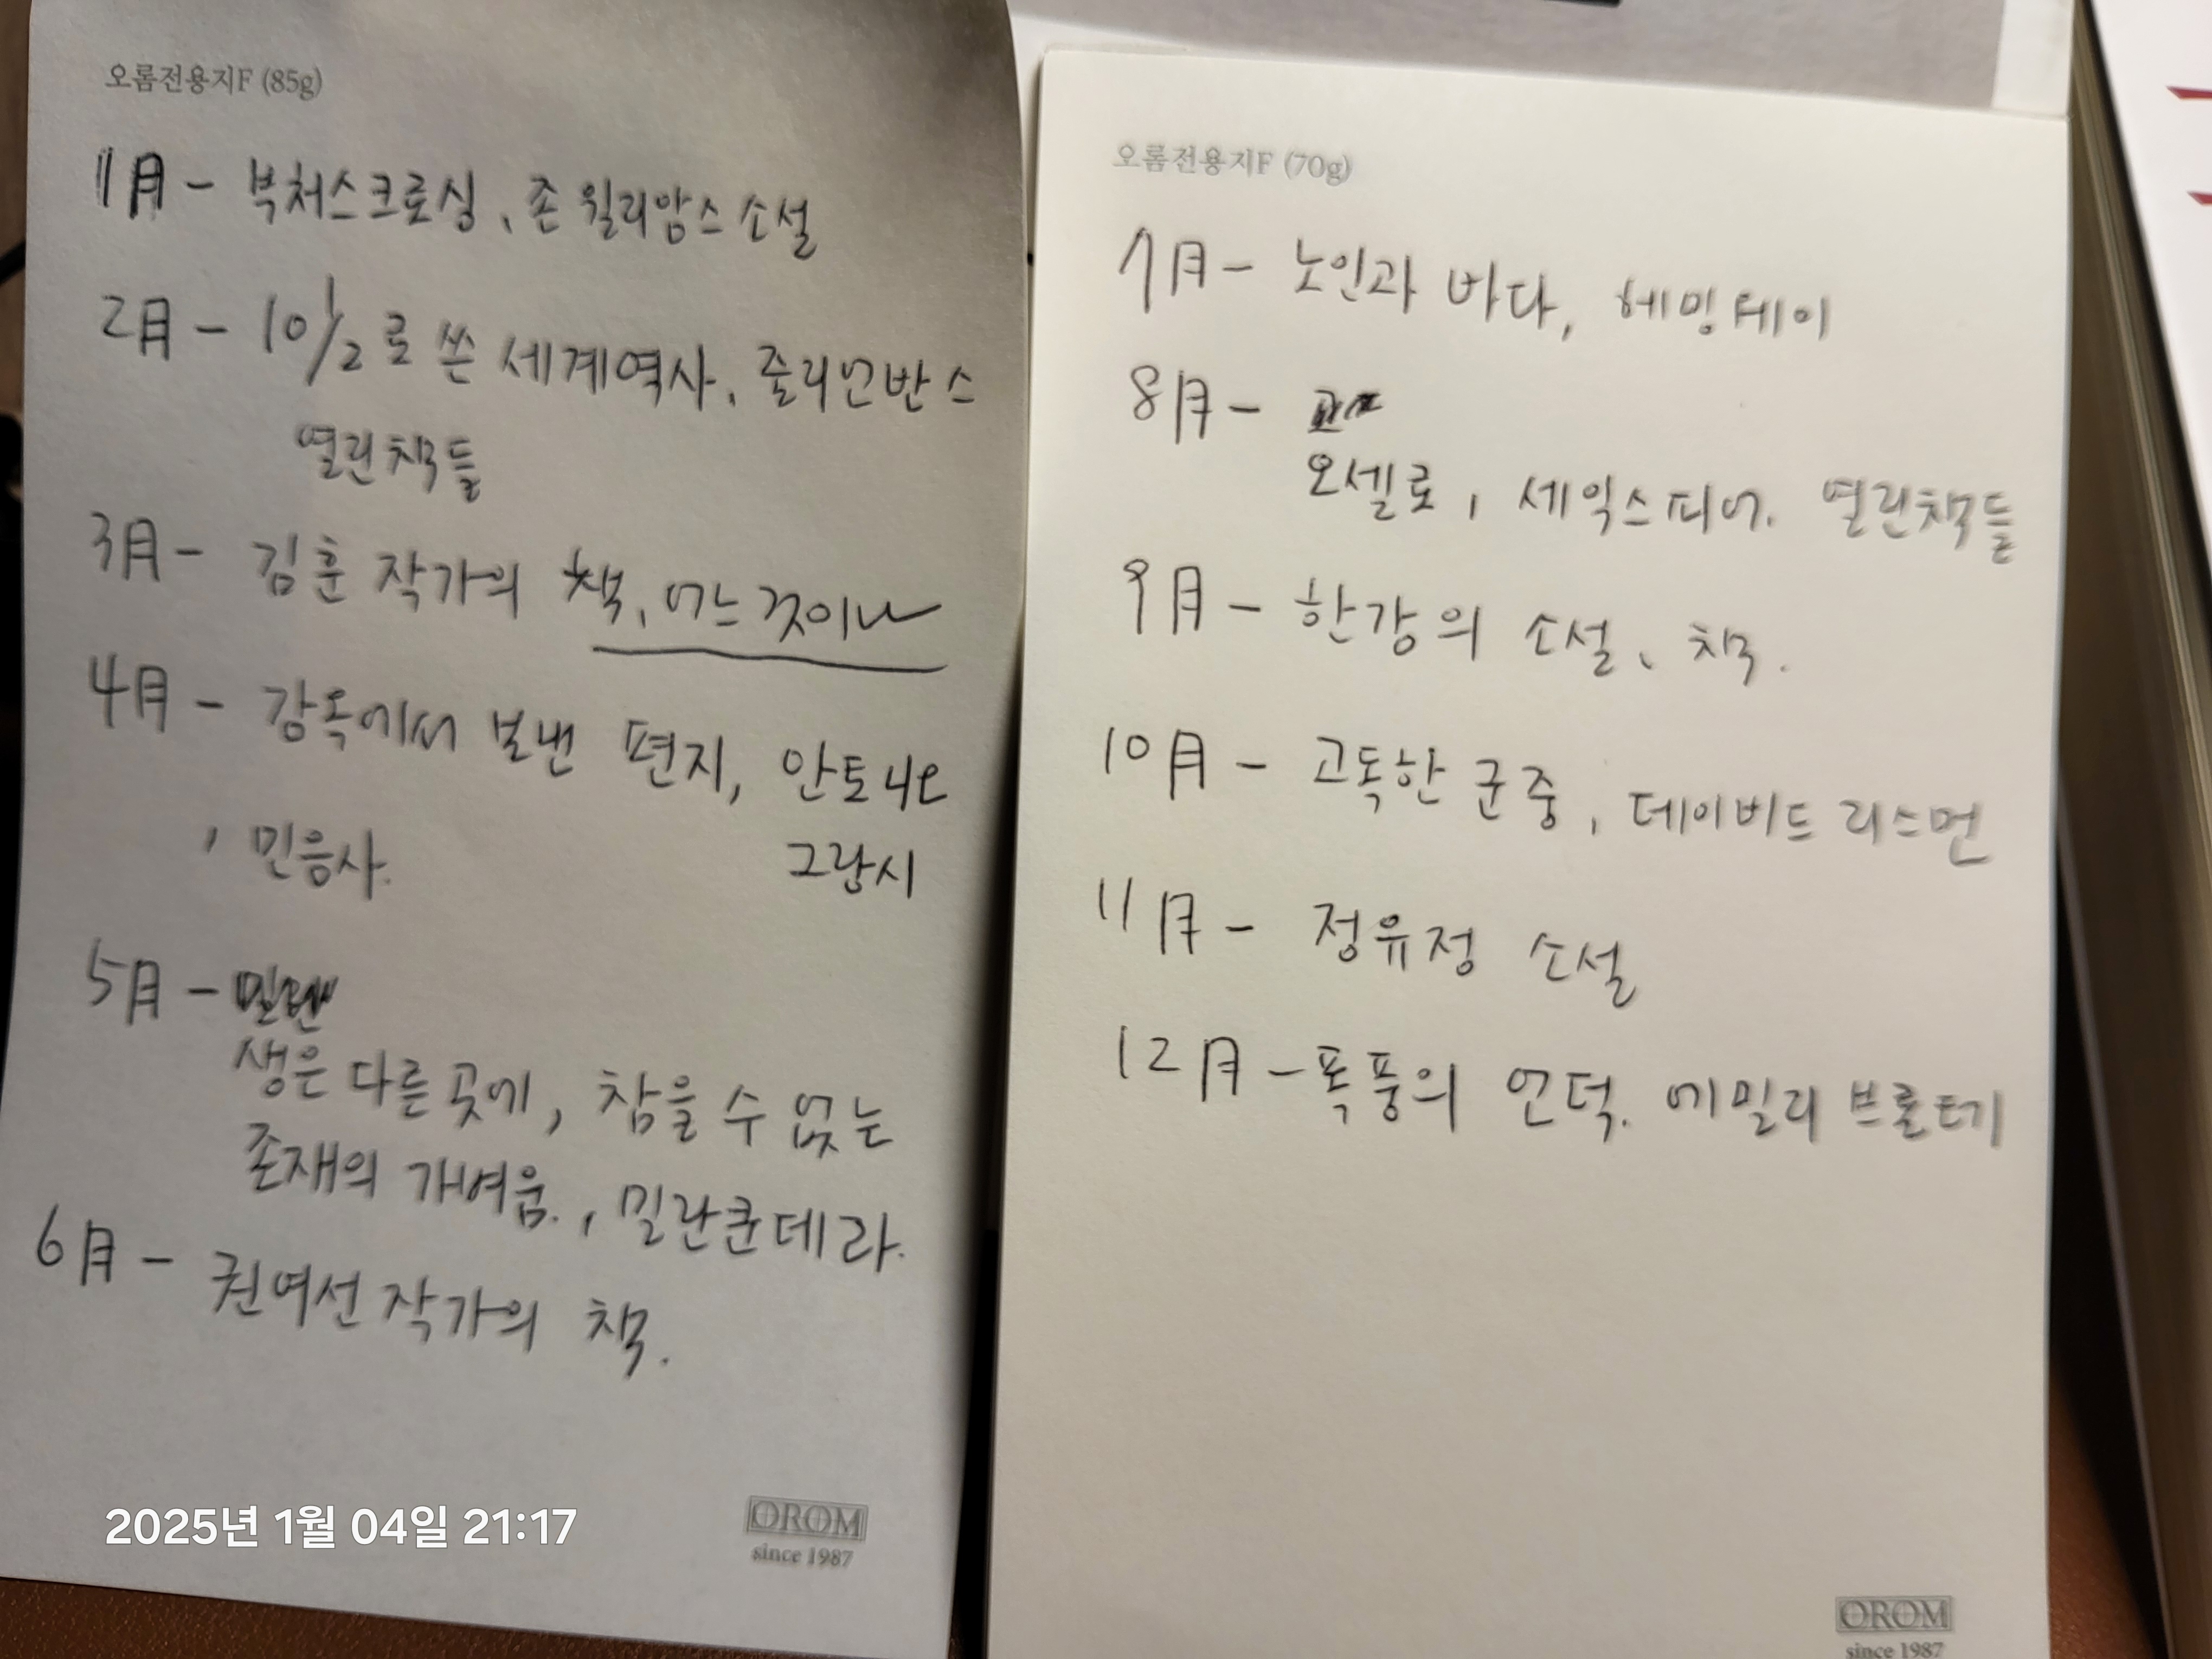 오롬전용지F (85g)
1月 - 부처스크로싱, 존 윌리암스 소설
2月 - 10 1/2로 쓴 세계역사, 줄리언반스
열린책들
3月 - 김훈 작가의 책, 어느것이나
4月 - 감옥에서 보낸 편지, 안토니오
, 민음사.
그람시
5月 -
생은 다른 곳에, 참을 수 없는
존재의 가벼움., 밀란쿤데라.
6月 - 권여선 작가의 책.
2025년 1월 04일 21:17
OROM
since 1987
오롬전용지F (70g)
7月 - 노인과 바다, 헤밍웨이
8月 -
오셀로, 세익스피어. 열린책들
9月 - 한강의 소설, 책.
10月 - 고독한 군중, 데이비드 리스먼
11月 - 정유정 소설
12月 - 폭풍의 언덕. 에밀리 브론테
OROM
since 1987